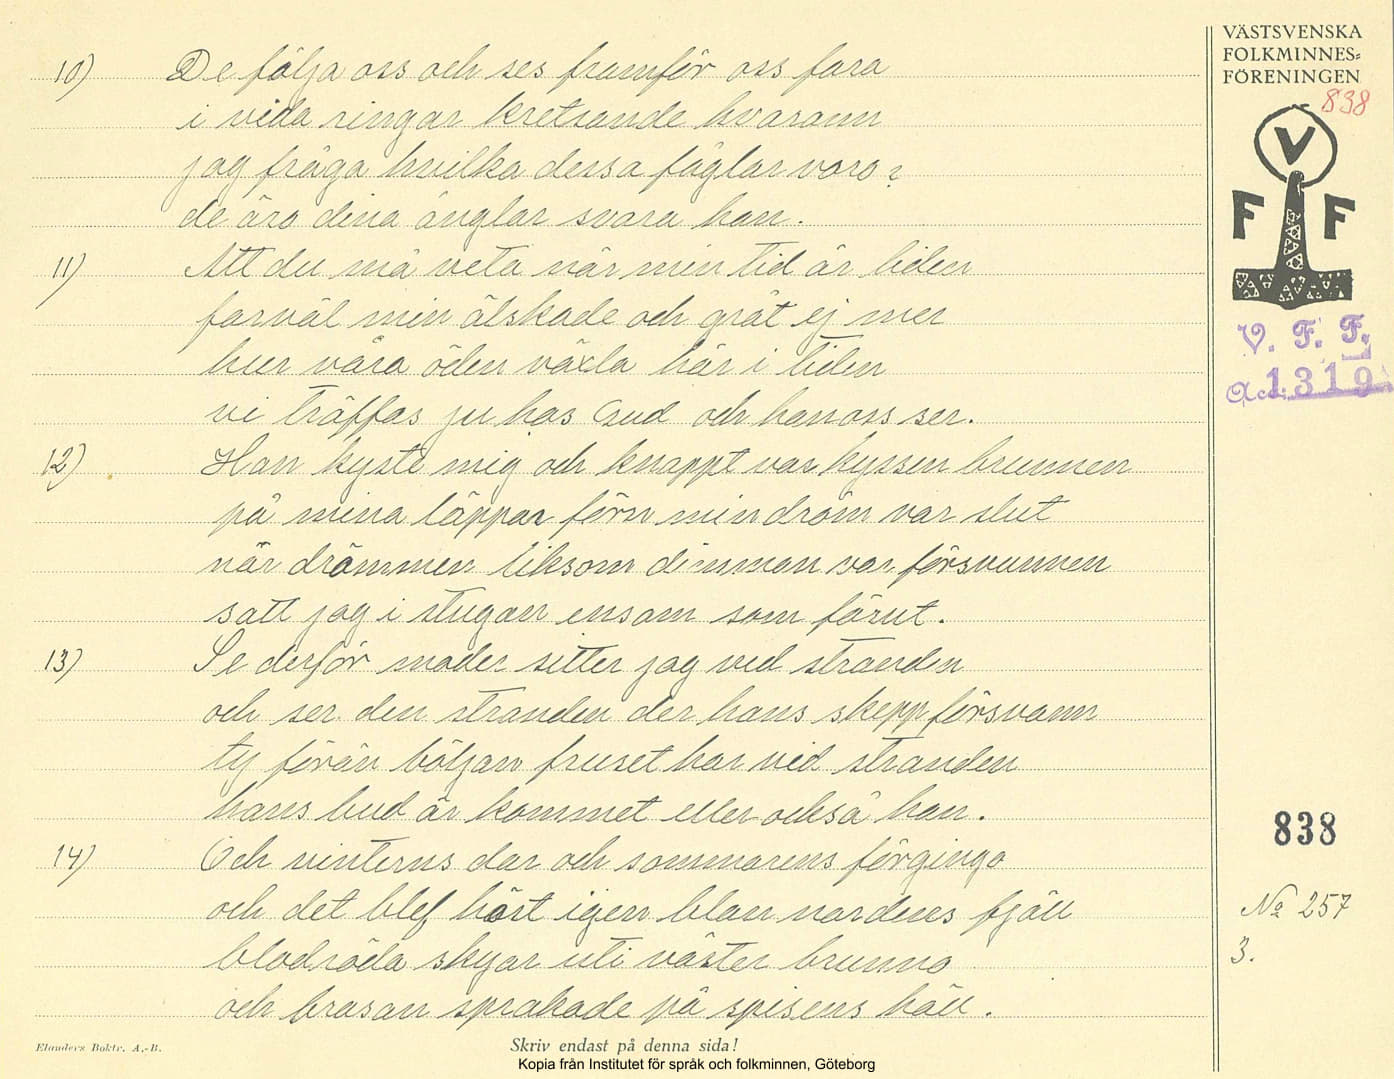 10) De følja oss och ses framför oss fara
i vida ringar kretsande hvarann
jag fråga hvilka dessa fåglar voro?
de äro dina änglar svara han.
11) Att du må veta när min tid är liden
farväl min älskade och gråt ej mer
hur våra öden växla här i tiden
vi träffas ju hos Gud och han oss ser.
12) Han kyste mig och knappt var kyssen brunnen
på mina läppar förn min dröm var slut
när drömmen liksom dimman var försvunnen
satt jag i stugan ensam som förut.
13) Se derför moder sitter jag ved stranden
och ser den stranden der hans skepp försvann
ty förän böljan fruset har vid stranden
hans bud är kommet eller också han.
14) Och vinterns dar och sommarens förginga
och det blef höst igen blan nordens fjäll
blodröda skyar uti väster brunno
och brasan sprakade på spisens häll.
VÄSTSVENSKA
FOLKMINNES-
FÖRENINGEN
838
V
F F
V. F. F.
Acc. 1319
838
No 257
3.
Elanders Boktr. A.-B.
Skriv endast på denna sida!
Kopia från Institutet för språk och folkminnen, Göteborg